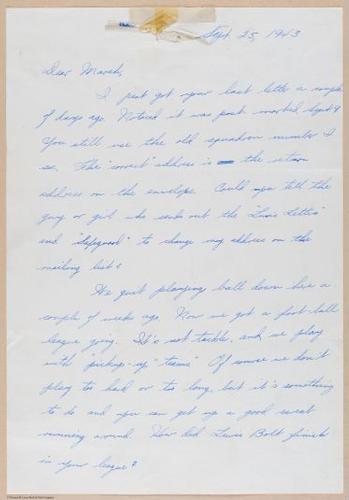 Sept. 25, 1943
Dear Marcel,
I just got your last letter a couple
of days ago. Noticed it was post marked, Sept 9
You still use the old squadron number I
see. The "correct" address is the return
address on the envelope. Could you tell the
guy or girl who sends out the "Lewis Letter"
and "Safeguard" to change my address on the
mailing list?
We quit playing ball down here a
couple of weeks ago. Now we got a foot-ball
league going. It's not tackle, and we play
with "pick-up" "teams" Of course we don't
play too hard or too long, but it's something
to do and you can get up a good sweat
running around. How did Lewis Bolt finish
in your league?